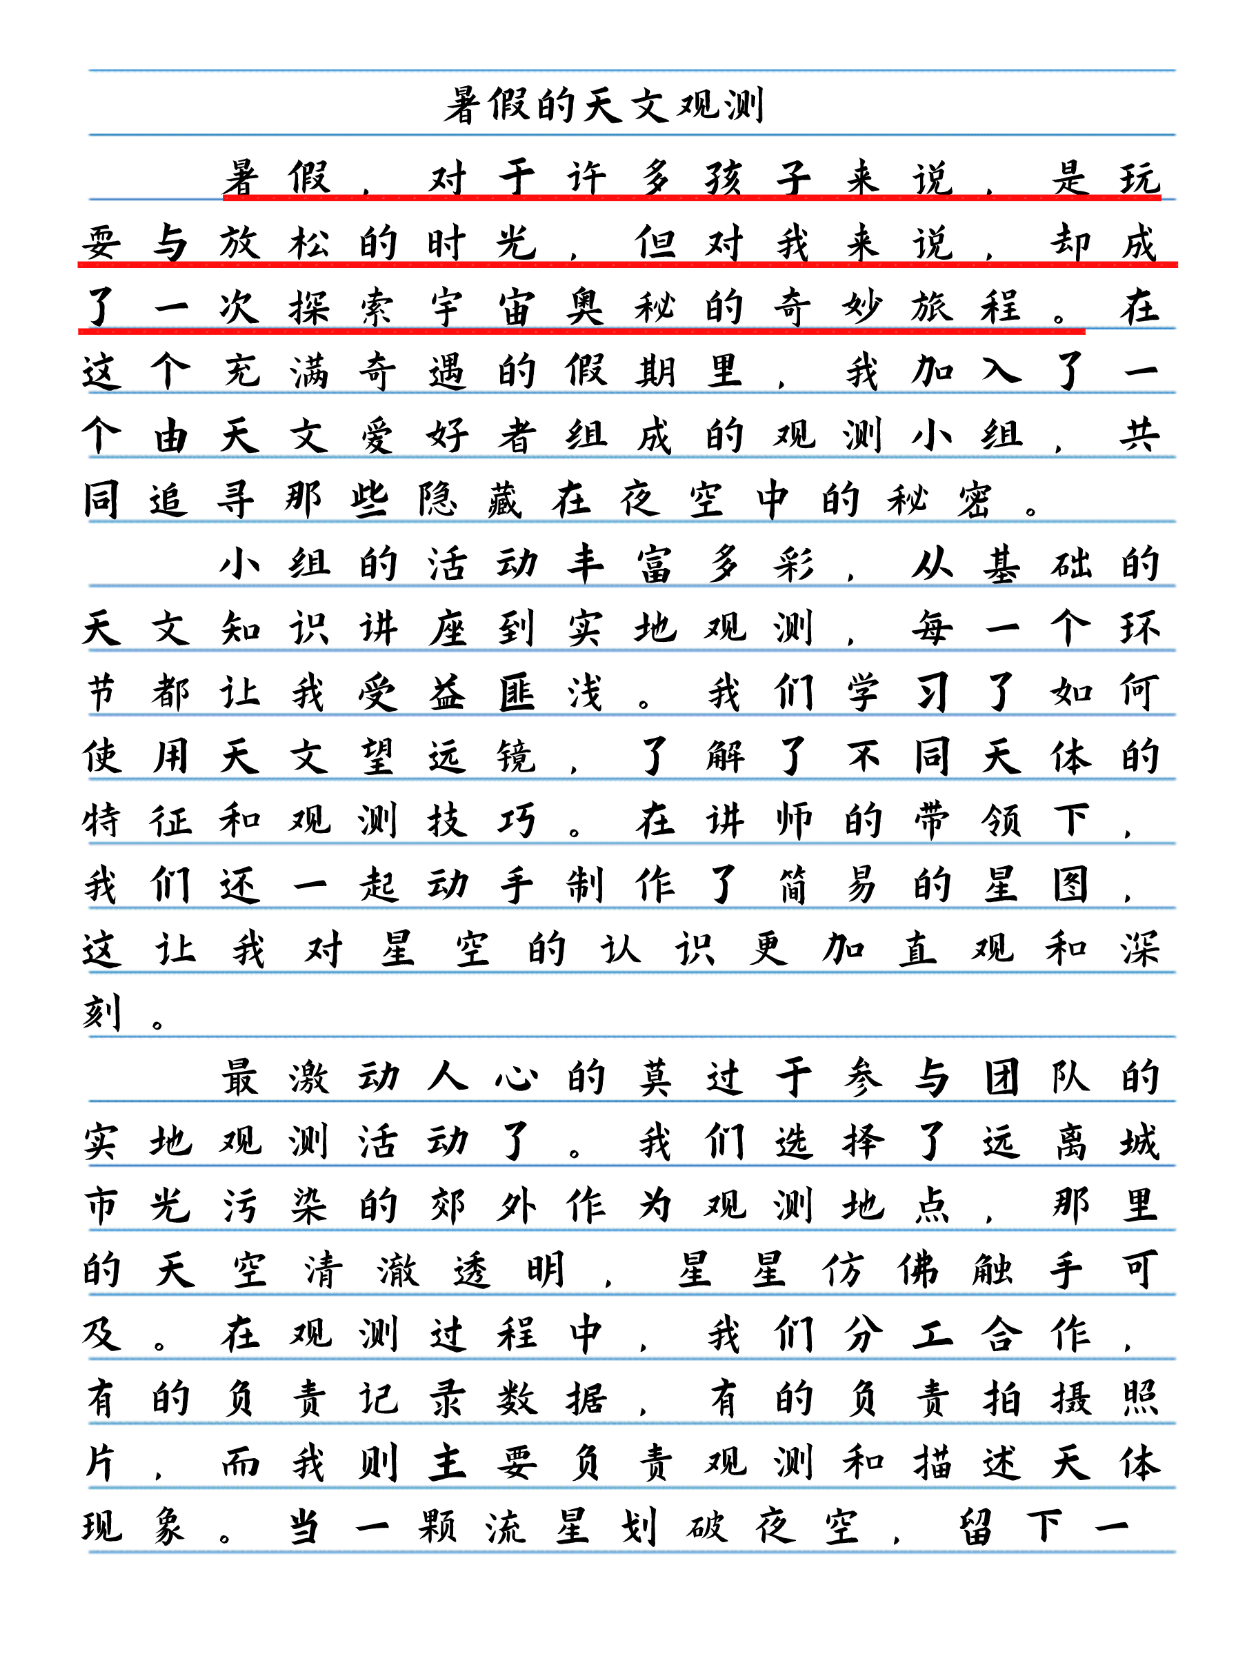 暑假的天文观测
暑假，对于许多孩子来说，是玩
耍与放松的时光，但对我来说，却成
了一次探索宇宙奥秘的奇妙旅程。在
这个充满奇遇的假期里，我加入了一
个由天文爱好者组成的观测小组，共
同追寻那些隐藏在夜空中的秘密。
小组的活动丰富多彩，从基础的
天文知识讲座到实地观测，每一个环
节都让我受益匪浅。我们学习了如何
使用天文望远镜，了解了不同天体的
特征和观测技巧。在讲师的带领下，
我们还一起动手制作了简易的星图，
这让我对星空的认识更加直观和深
刻。
最激动人心的莫过于参与团队的
实地观测活动了。我们选择了远离城
市光污染的郊外作为观测地点，那里
的天空清澈透明，星星仿佛触手可
及。在观测过程中，我们分工合作，
有的负责记录数据，有的负责拍摄照
片，而我则主要负责观测和描述天体
现象。当一颗流星划破夜空，留下一